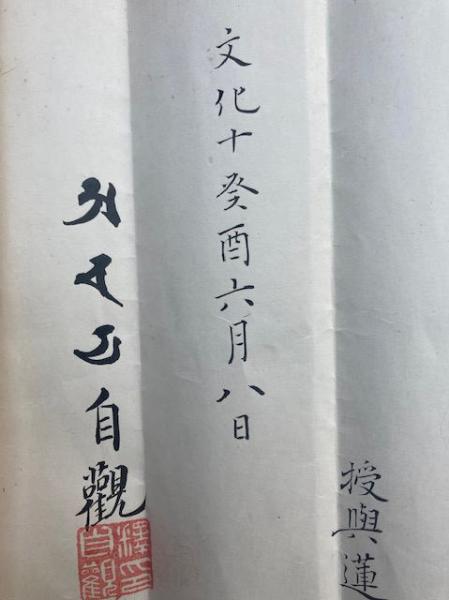 授與蓮
文化十癸酉六月八日
自觀
自觀